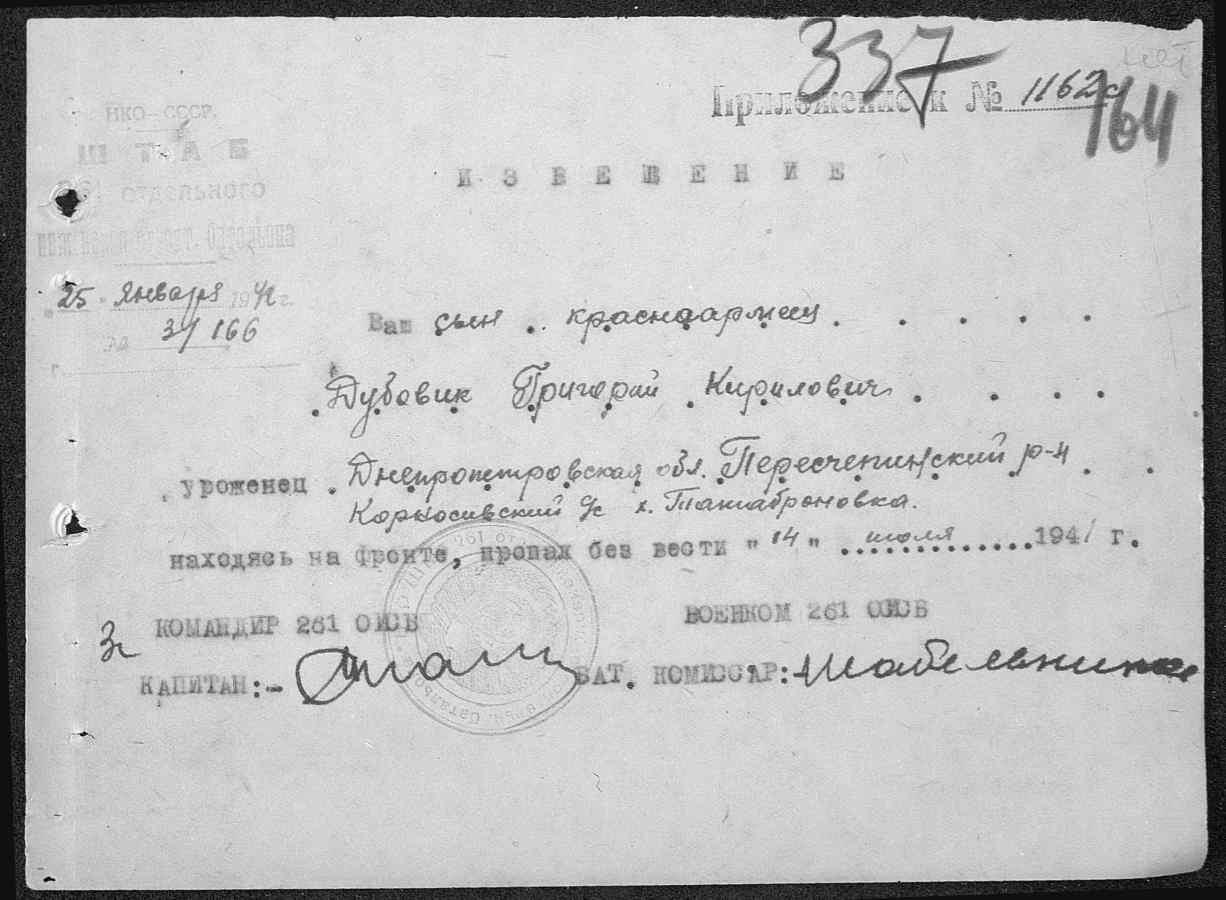 337
Приложение к № 1162с
164
НКО-СССР.
ШТАБ
ОТДЕЛЬНОГО
ИЗВЕЩЕНИЕ
25 Января 1942 г.
№ 3/166
Ваш сын красноармеец
Дубовик Григорий Кирилович
уроженец Днепропетровская обл. Пересчепинский р-н
х.
находясь на фронте, пропал без вести "14" июля 1941 г.
КОМАНДИР 261 ОИСБ
ВОЕНКОМ 261 ОИСБ
КАПИТАН:-
БАТ. КОМИССАР:-